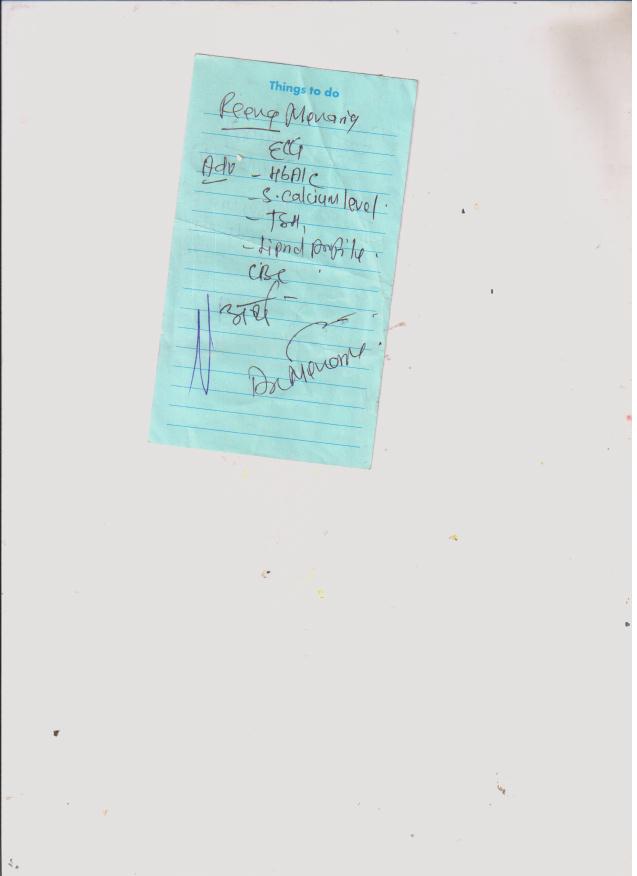 Things to do
Reena Menaria
ECG
Adv - HbA1C
- S. calcium level.
- TSH,
- Lipid Profile.
CBC
Dr Menaria